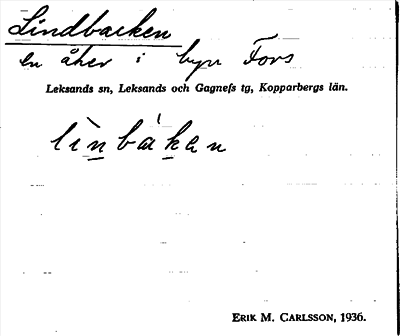 Lindbacken
en åker i byn Fors
Leksands sn, Leksands och Gagnefs tg, Kopparbergs län.
lìnbákan
ERIK M. CARLSSON, 1936.